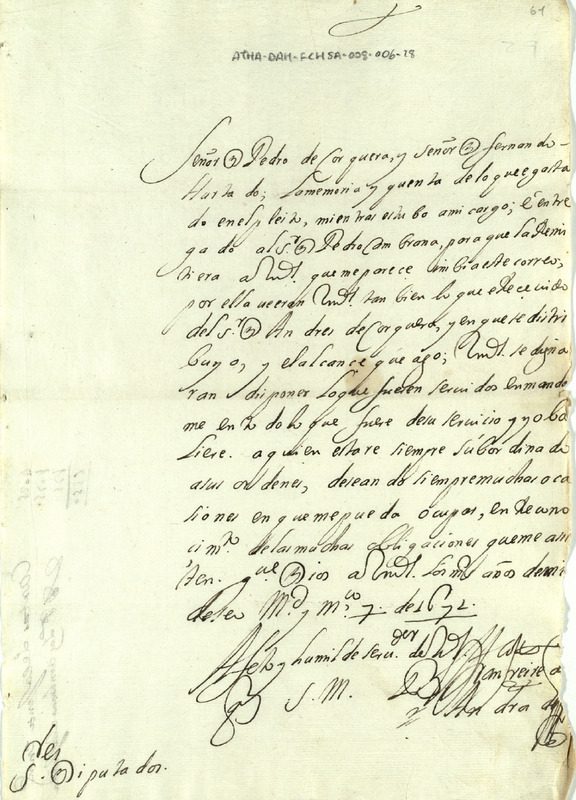 64
ATHA-DAH-FCHSA-008-006-28
Señor D Pedro de Corquera, y señor D fernando
Hurtado; Lamemoria y quenta de lo que e gasta
do en el pleito, mientras estubo ami cargo; é entre
gado al sr. D Pedro Cambrana, para que la Remi
tiera a Vmd. que me parece imbia este correo;
por ella veeran Vmd. tan bien lo que e Receuido
del sr. D Andres de Corquera, y en que se distri
buyo, y el alcance que ago; Vmd. se digna
ran disponer lo que fueren seruidos en mando
me en todo lo que fuere de su seruicio y yo ba
liere. a quien estare siempre subordinado
a sus ordenes, deseando siempre muchas oca
siones en que me pueda ocupar, en Recono
cimto. de las muchas obligaciones que me asis
ten. gue. Dios a Vmd. los ms. años de mi
deseo Md. y mco. 7. de 1672.
Afeto y humilde seruer. de Vd.
S. M.
Juan freire
Andra
des
S. Diputados.